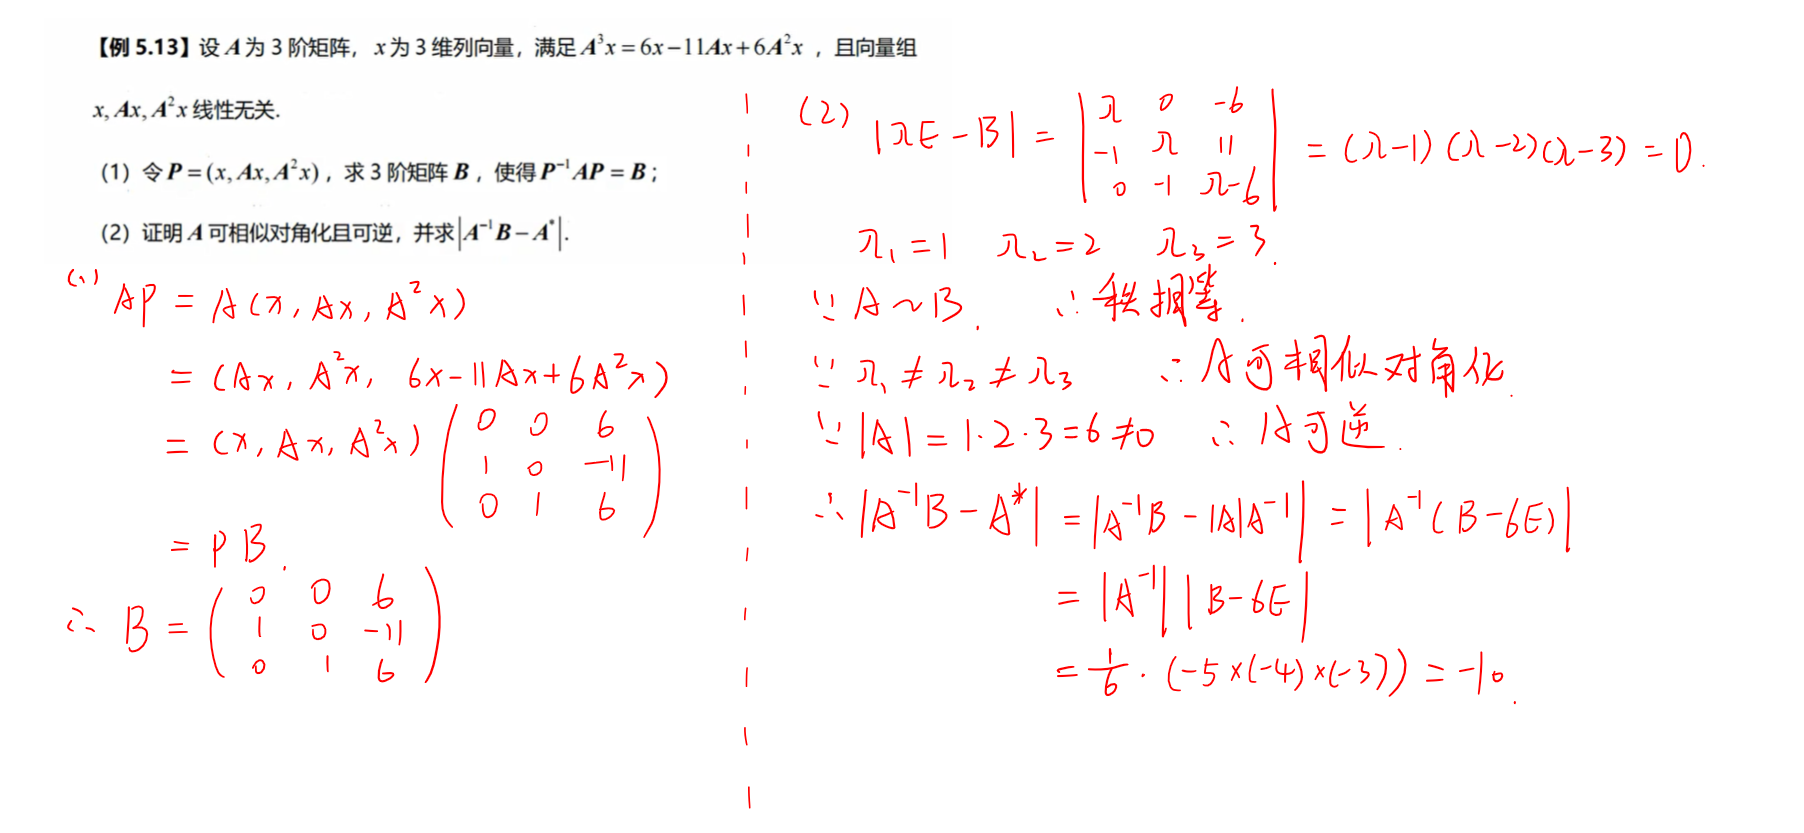 【例 5.13】设 A 为 3 阶矩阵，x 为 3 维列向量，满足 A³x = 6x − 11Ax + 6A²x ，且向量组
x, Ax, A²x 线性无关.
（1）令 P = (x, Ax, A²x)，求 3 阶矩阵 B，使得 P⁻¹AP = B；
（2）证明 A 可相似对角化且可逆，并求|A⁻¹B − A*|.
(1) AP = A(x, Ax, A²x)
= (Ax, A²x, 6x−11Ax+6A²x)
= (x, Ax, A²x) ( 0 0 6
1 0 −11
0 1 6 )
= PB.
∴ B = ( 0 0 6
1 0 −11
0 1 6 )
(2) |λE − B| = | λ 0 −6
−1 λ 11
0 −1 λ−6 | = (λ−1)(λ−2)(λ−3) = 0.
λ₁ = 1 λ₂ = 2 λ₃ = 3.
∵ A ~ B. ∴ 秩相等.
∵ λ₁ ≠ λ₂ ≠ λ₃ ∴ A可相似对角化.
∵ |A| = 1·2·3 = 6 ≠ 0 ∴ A可逆.
∴ |A⁻¹B − A*| = |A⁻¹B − |A|A⁻¹| = |A⁻¹(B − 6E)|
= |A⁻¹| |B − 6E|
= 1/6 · (−5×(−4)×(−3)) = −10.